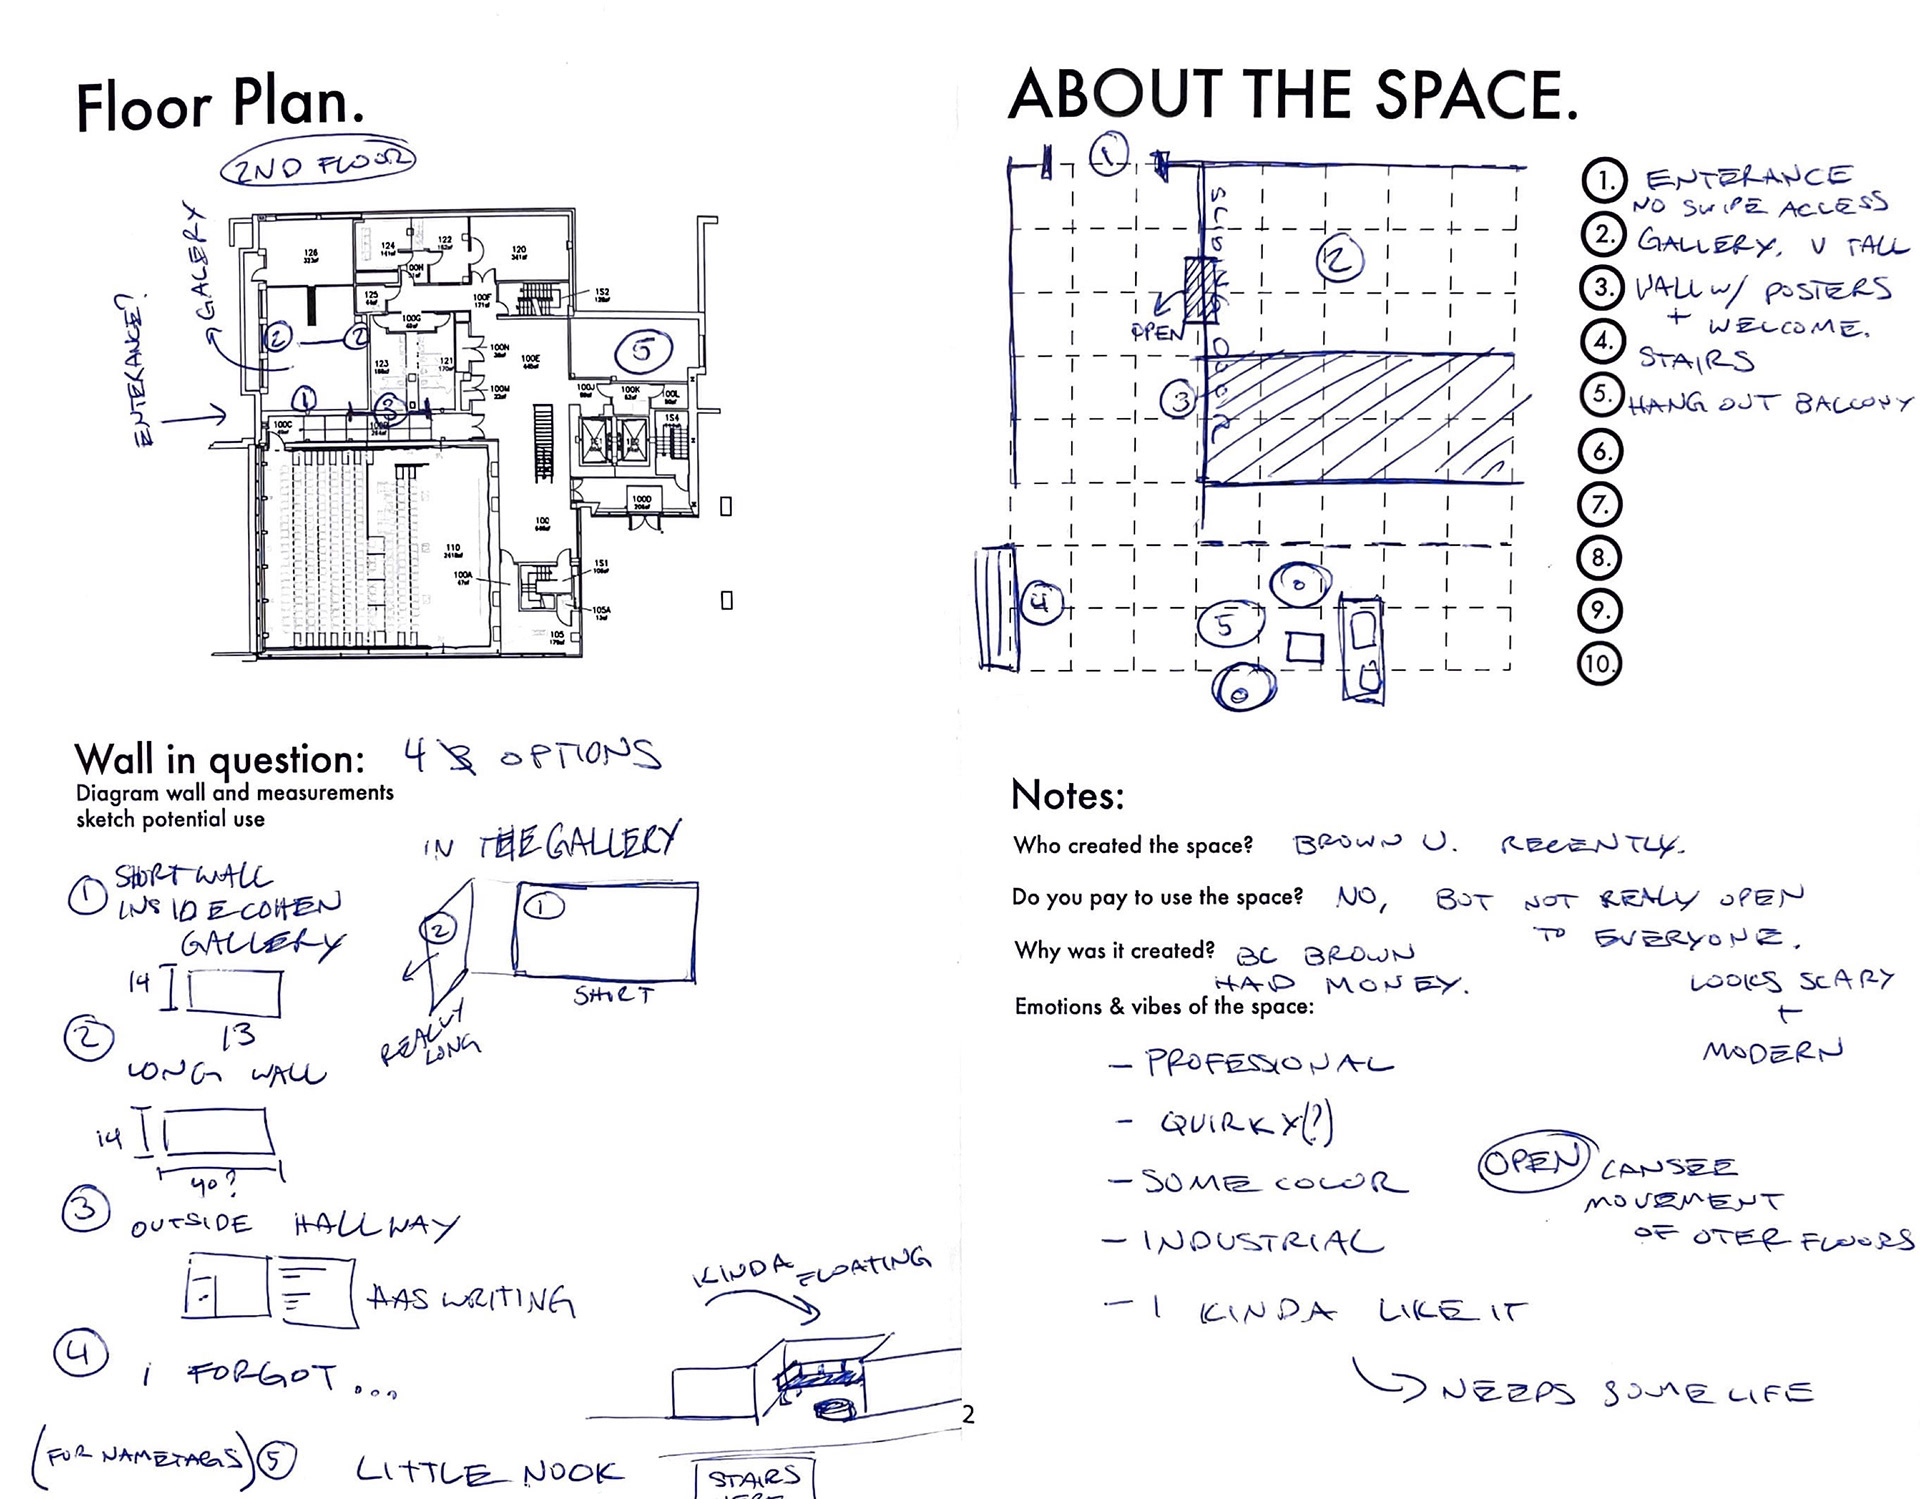 Floor Plan.
2ND FLOOR
GALERY
ENTERANCE?
126
323sf
124
122
120
341sf
100H
125
100F
171sf
1S2
100G
2
2
123
121
100N
100E
5
100M
100J
100K
100L
1
3
100C
1S4
110
100D
100
100A
1S1
105A
105
Wall in question: 4 3 OPTIONS
Diagram wall and measurements
sketch potential use
1 SHORT WALL
INSIDE COHEN
GALLERY
14
13
IN THE GALLERY
2
1
SHORT
REALLY
LONG
2
LONG WALL
14
40?
3
OUTSIDE HALLWAY
HAS WRITING
KINDA FLOATING
4
I FORGOT...
(FOR NAMETAGS) 5 LITTLE NOOK
STAIRS
HERE
2
ABOUT THE SPACE.
1
SLIDING DOOR
2
OPEN
3
4
5
1. ENTERANCE
NO SWIPE ACCESS
2. GALLERY, V TALL
3. WALL W/ POSTERS
+ WELCOME.
4. STAIRS
5. HANG OUT BALCONY
6.
7.
8.
9.
10.
Notes:
Who created the space? BROWN U. RECENTLY.
Do you pay to use the space? NO, BUT NOT REALY OPEN
TO EVERYONE.
Why was it created? BC BROWN
HAD MONEY.
LOOKS SCARY
+
MODERN
Emotions & vibes of the space:
- PROFESSIONAL
- QUIRKY(?)
- SOME COLOR
- INDUSTRIAL
- I KINDA LIKE IT
NEEDS SOME LIFE
OPEN CAN SEE
MOVEMENT
OF OTER FLOORS